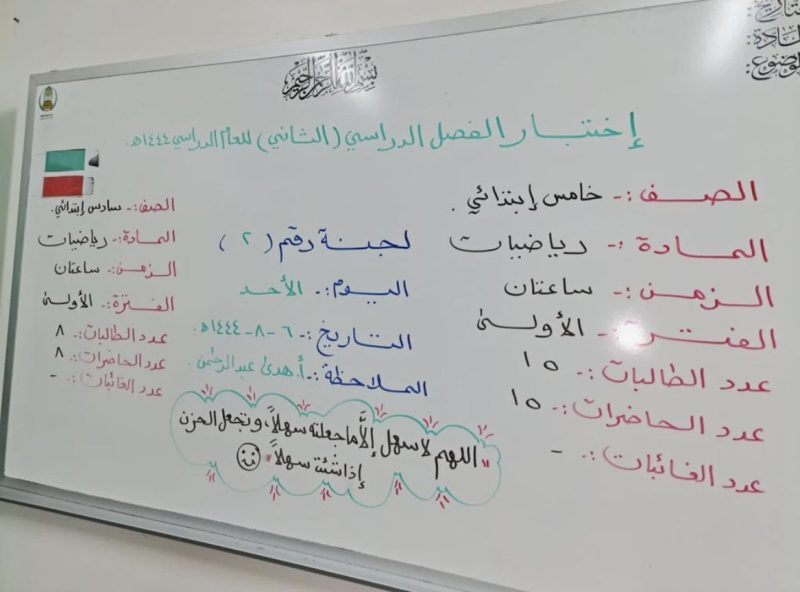 بسم الله الرحمن الرحيم
التاريخ:
المادة:
الموضوع:
إختبار الفصل الدراسي (الثاني) للعام الدراسي ١٤٤٤هـ.
الصف:- خامس إبتدائي.
المادة:- رياضيات
الزمن:- ساعتان
الفترة:- الأولى
عدد الطالبات:- ١٥
عدد الحاضرات:- ١٥
عدد الغائبات:- -
لجنة رقم (٢)
اليوم:- الأحد
التاريخ:- ٦-٨-١٤٤٤هـ
الملاحظة:- أ.هدى عبدالرحمن.
الصف:- سادس إبتدائي.
المادة:- رياضيات
الزمن:- ساعتان
الفترة:- الأولى
عدد الطالبات:- ٨
عدد الحاضرات:- ٨
عدد الغائبات:- -
"اللهم لا سهل إلَّا ما جعلته سهلاً، وتجعل الحزن
إذا شئت سهلاً"